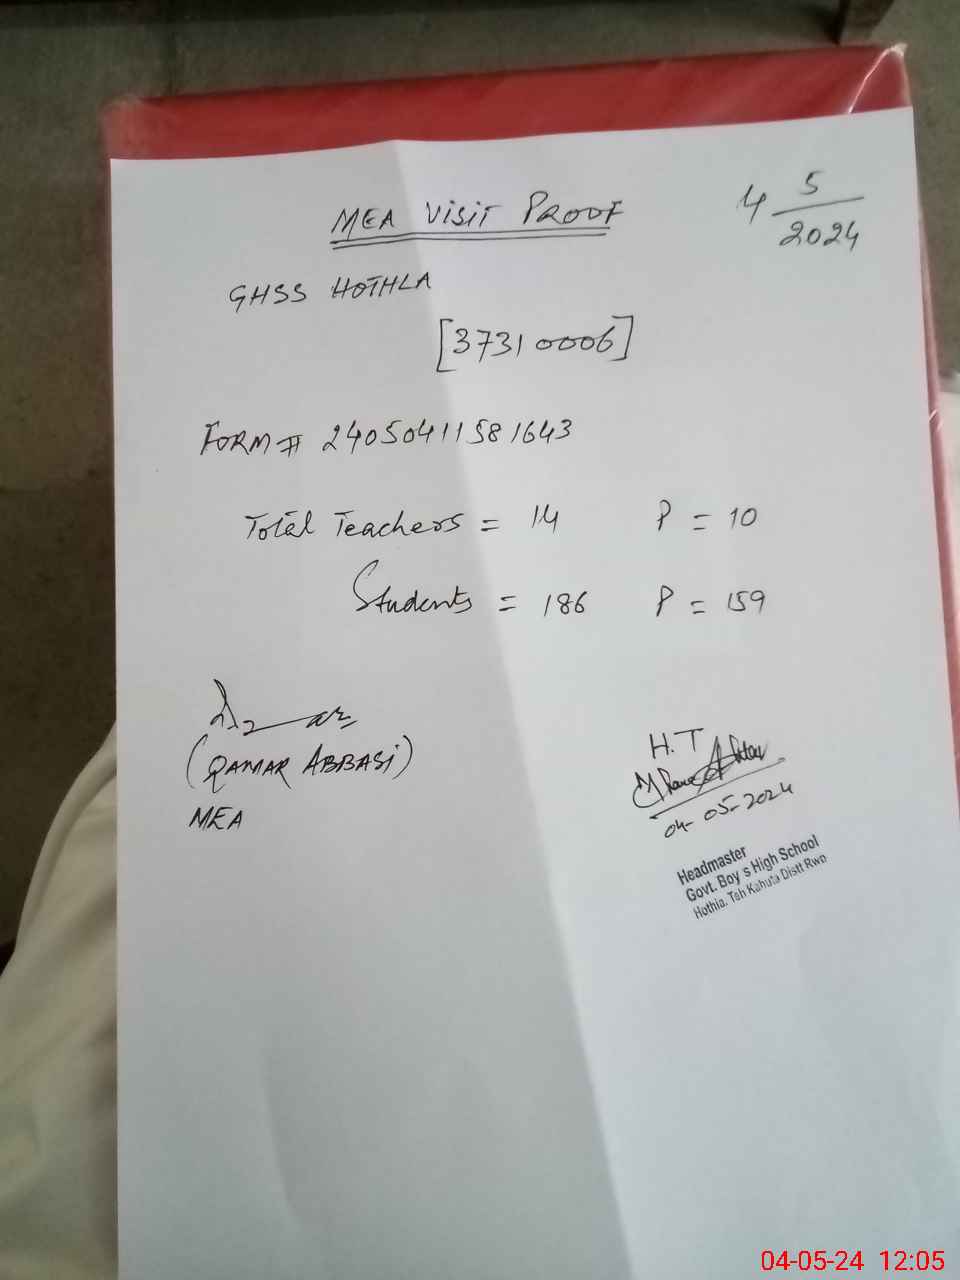 MEA VISIT PROOF
4 5/2024
GHSS HOTHLA
[37310006]
FORM # 24050411581643
Total Teachers = 14 P = 10
Students = 186 P = 159
(QAMAR ABBASI)
MEA
H.T
04-05-2024
Headmaster
Govt. Boy s High School
Hothla. Teh Kahuta Distt Rwp
04-05-24 12:05